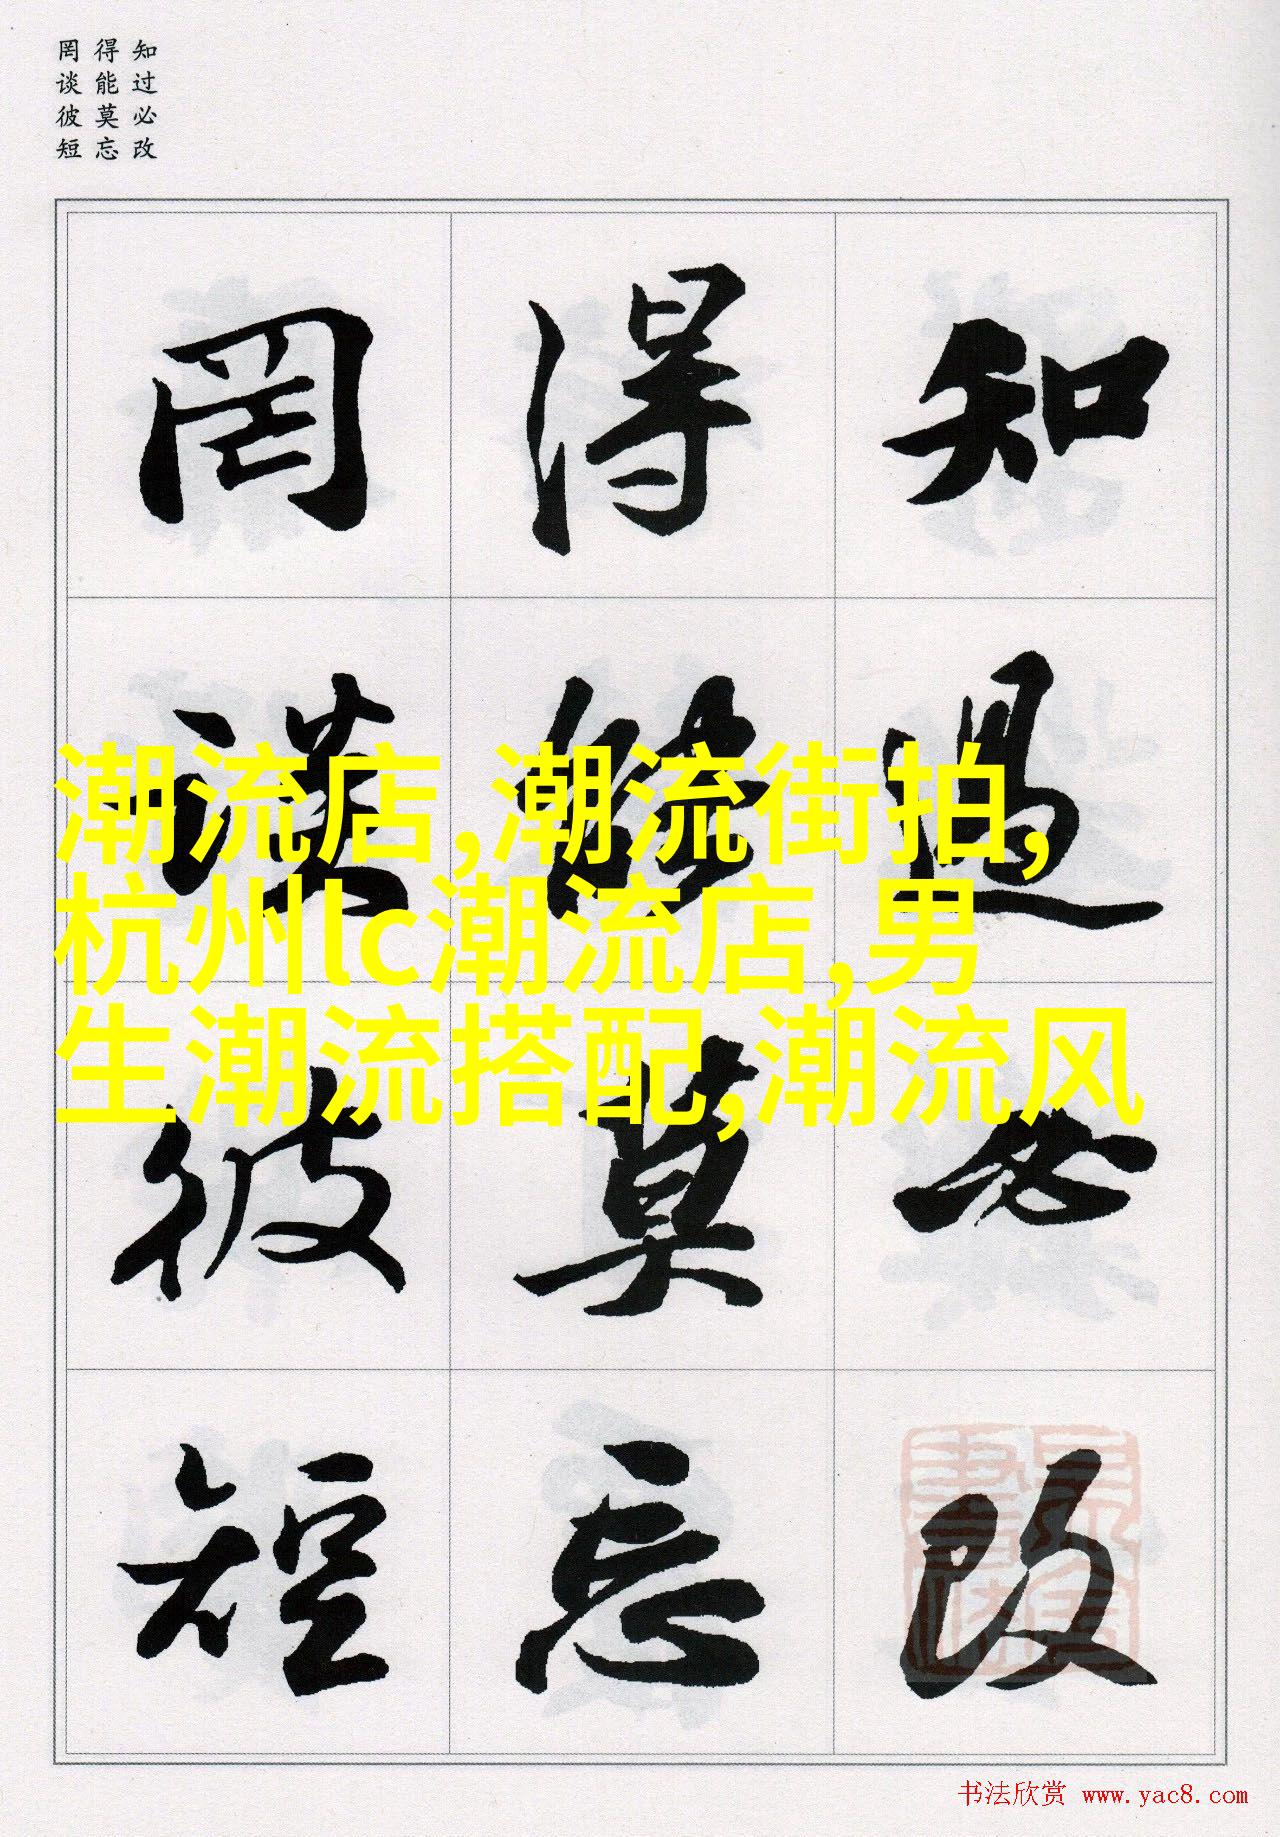 知过必改
得能莫忘
罔谈彼短
罔得知
谈能過
彼莫必
短忘改
潮流店,潮流街拍,
杭州lc潮流店,男
生潮流搭配,潮流风
书法欣赏 www.yac8.com